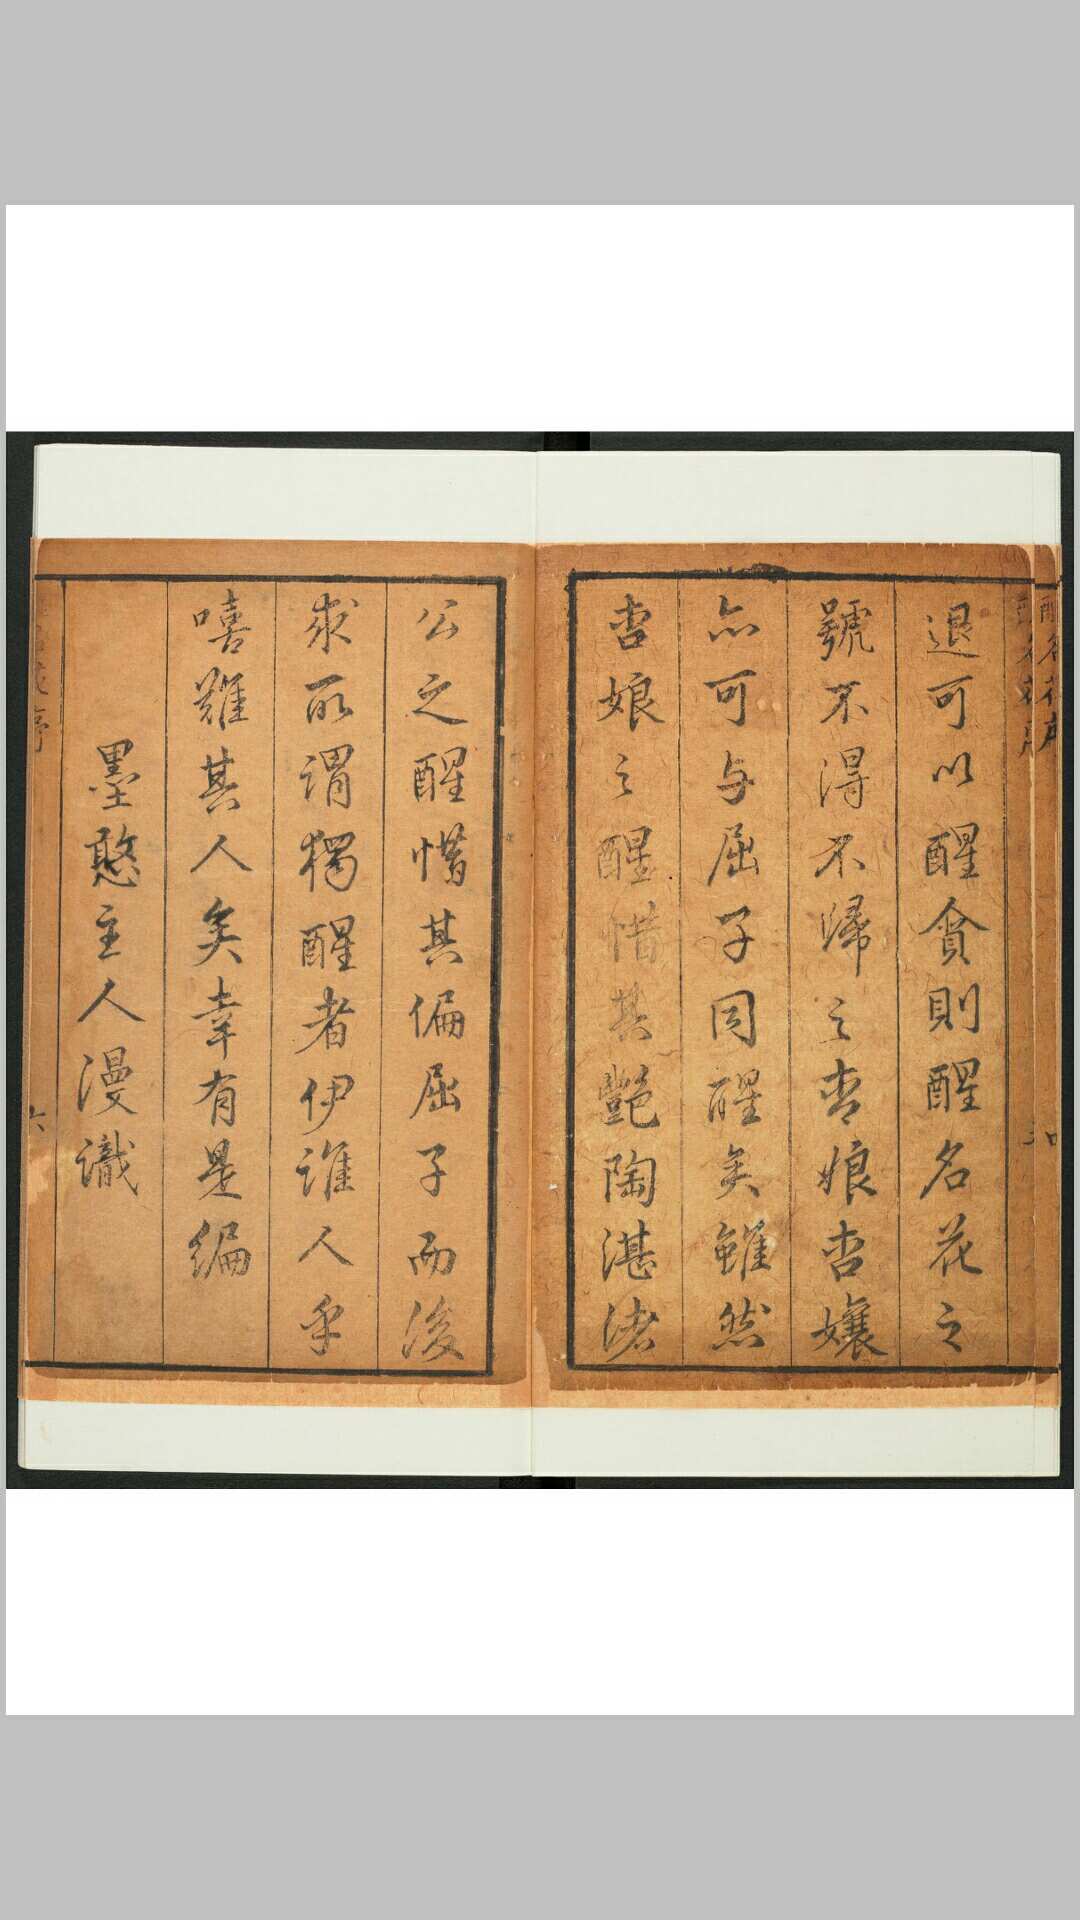 退可以醒貪則醒名花之
號不得不歸之杏娘杏孃
亦可与屈子同醒矣雖然
杏娘之醒惜其艶陶湛诸
公之醒惜其偏屈子而後
求所謂獨醒者伊誰人乎
嘻難其人矣幸有是编
墨憨主人漫識